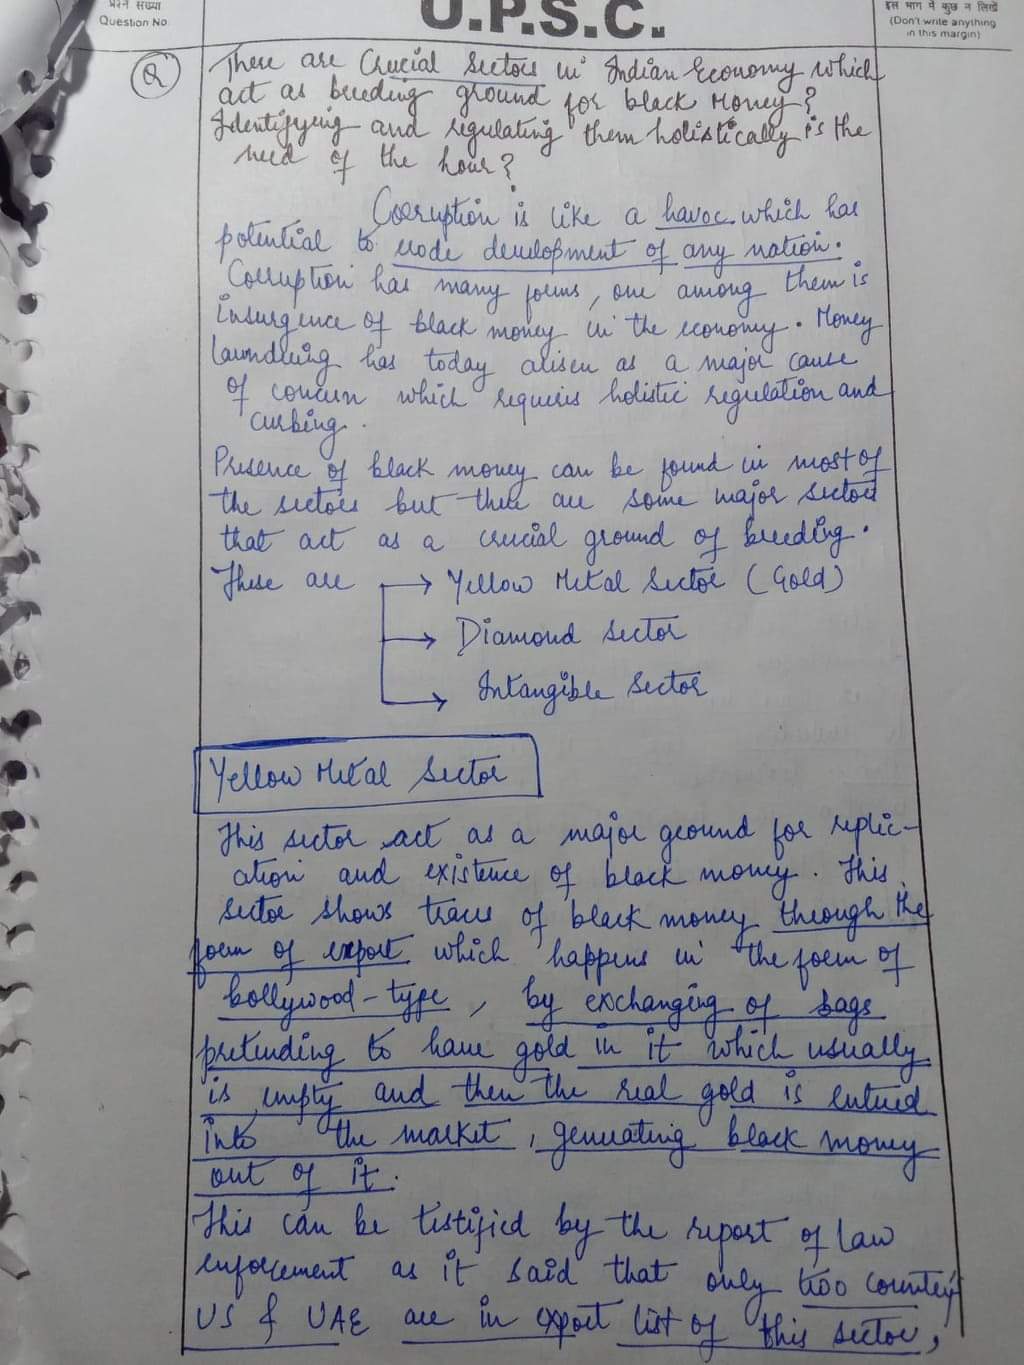 प्रश्न संख्या
Question No.
U.P.S.C.
इस भाग में कुछ न लिखें
(Don't write anything
in this margin)
Q
There are Crucial Sectors in Indian Economy which
act as breeding ground for black Money?
Identifying and regulating them holistically is the
need of the hour?
Corruption is like a havoc which has
potential to erode development of any nation.
Corruption has many forms, one among them is
insurgence of black money in the economy. Money
laundering has today arisen as a major cause
of concern which requires holistic regulation and
curbing.
Presence of black money can be found in most of
the sectors but there are some major sectors
that act as a crucial ground of breeding.
These are → Yellow Metal Sector (Gold)
→ Diamond Sector
→ Intangible Sector
Yellow Metal Sector
This sector act as a major ground for replic-
ation and existence of black money. This
sector shows traces of black money through the
form of export which happens in the form of
bollywood-type, by exchanging of bags
pretending to have gold in it which usually
is empty and then the real gold is entered
into the market, generating black money
out of it.
This can be testified by the report of law
enforcement as it said that only two country
US & UAE are in export list of this sector,